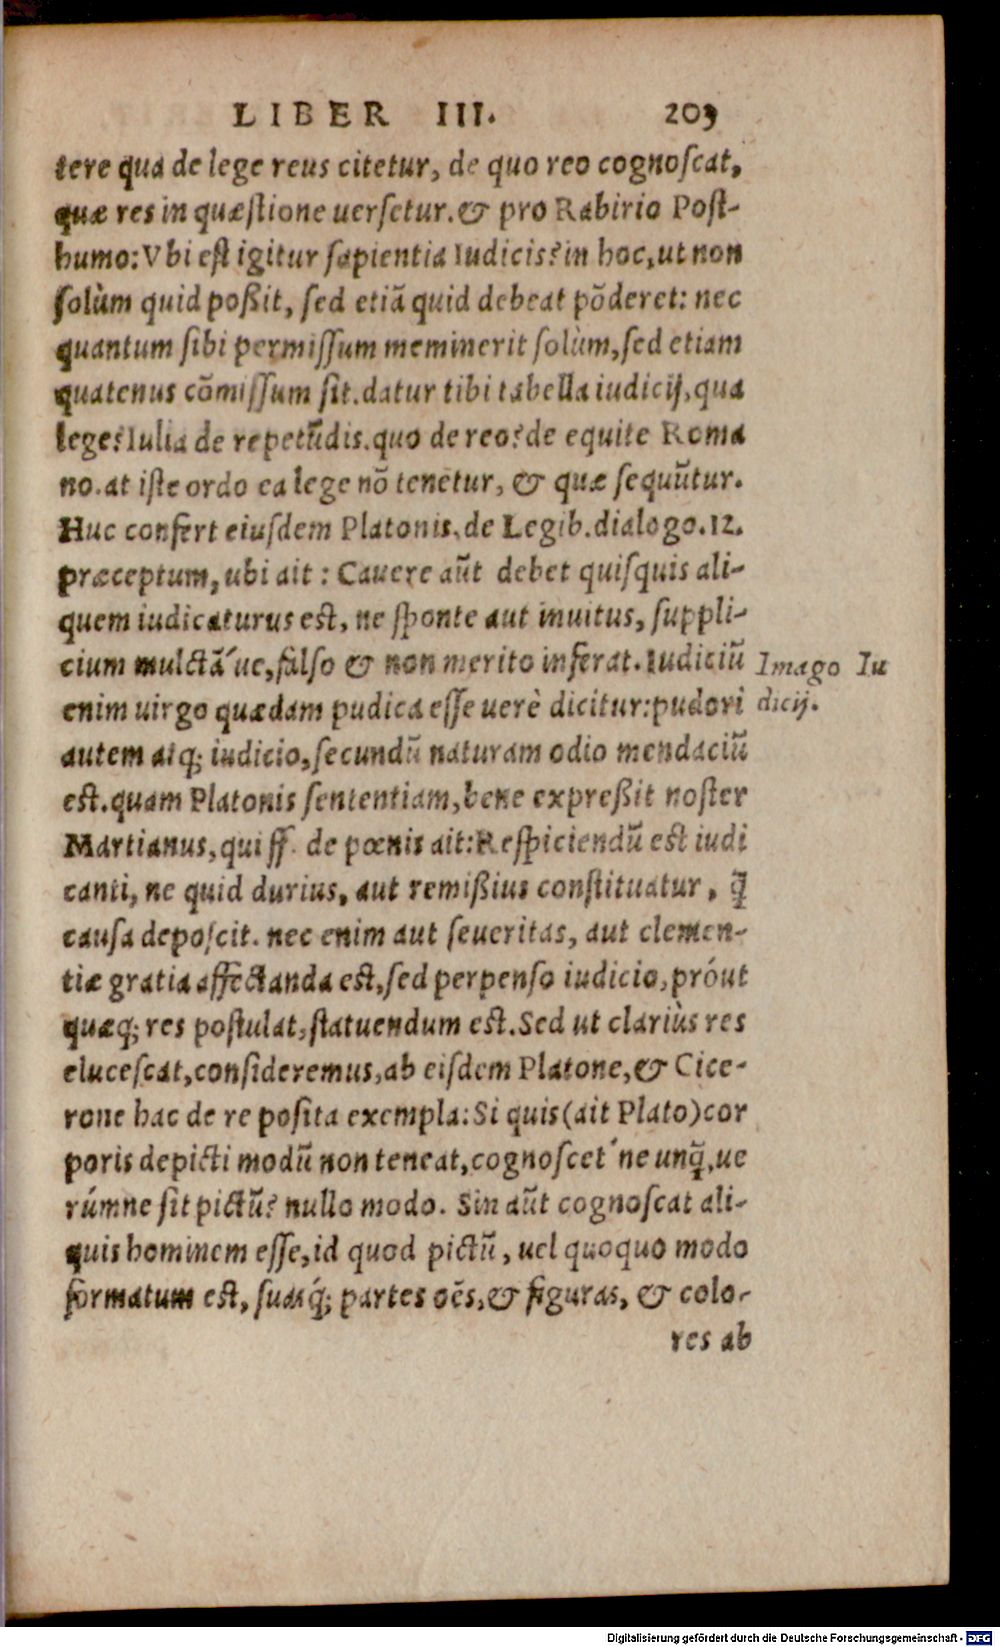 LIBER III. 203
tere qua de lege reus citetur, de quo reo cognoſcat,
quæ res in quæſtione uerſetur. & pro Rabirio Poſt-
humo: Vbi eſt igitur ſapientia Iudicis? in hoc, ut non
ſolùm quid poßit, ſed etiã quid debeat põderet: nec
quantum ſibi permiſſum meminerit ſolùm, ſed etiam
quatenus cõmiſſum ſit. datur tibi tabella iudicij, qua
lege? Iulia de repetũdis. quo de reo? de equite Roma
no. at iſte ordo ea lege nõ tenetur, & quæ ſequũtur.
Huc confert eiuſdem Platonis, de Legib. dialogo. 12.
præceptum, ubi ait: Cauere aũt debet quiſquis ali-
quem iudicaturus est, ne ſponte aut inuitus, ſuppli-
cium mulctã´ue, falſo & non merito inferat. Iudiciũ
Imago Iu
enim uirgo quædam pudica eſſe uerè dicitur: pudori
dicij.
autem atq; iudicio, ſecundũ naturam odio mendaciũ
est. quam Platonis ſententiam, bene expreßit noſter
Martianus, qui ff. de pœnis ait: Reſpiciendũ est iudi
canti, ne quid durius, aut remißius conſtituatur, q̃
cauſa depoſcit. nec enim aut ſeueritas, aut clemen-
tiæ gratia affectanda est, ſed perpenſo iudicio, próut
quæq; res poſtulat, ſtatuendum est. Sed ut clariùs res
eluceſcat, conſideremus, ab eiſdem Platone, & Cice-
rone hac de re poſita exempla: Si quis (ait Plato) cor
poris depicti modũ non teneat, cognoſcet´ne unq̃, ue
rúmne ſit pictũ? nullo modo. Sin aũt cognoſcat ali-
quis hominem eſſe, id quod pictũ, uel quoquo modo
formatum est, ſuasq́; partes oẽs, & figuras, & colo-
res ab
Digitalisierung gefördert durch die Deutsche Forschungsgemeinschaft - DFG